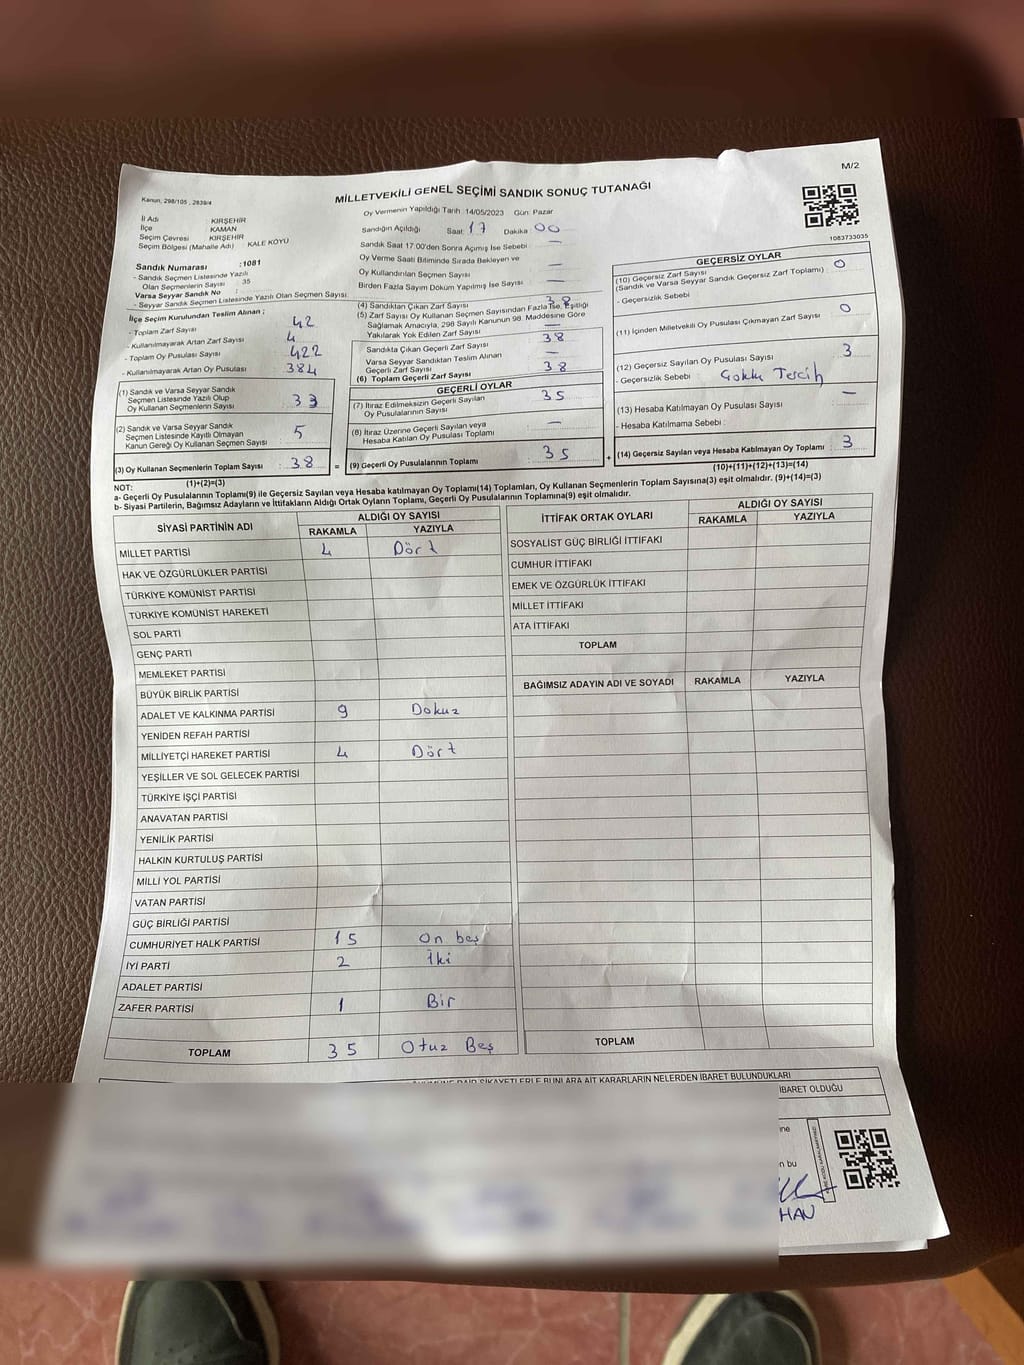 M/2
MİLLETVEKİLİ GENEL SEÇİMİ SANDIK SONUÇ TUTANAĞI
Kanun, 298/105 , 2839/4
İl Adı KIRŞEHİR
İlçe KAMAN
Seçim Çevresi KIRŞEHİR
Seçim Bölgesi (Mahalle Adı) KALE KÖYÜ
Sandık Numarası :1081
- Sandık Seçmen Listesinde Yazılı
Olan Seçmenlerin Sayısı : 35
Varsa Seyyar Sandık No :
- Seyyar Sandık Seçmen Listesinde Yazılı Olan Seçmen Sayısı:
İlçe Seçim Kurulundan Teslim Alınan ;
- Toplam Zarf Sayısı 42
- Kullanılmayarak Artan Zarf Sayısı 4
- Toplam Oy Pusulası Sayısı 422
- Kullanılmayarak Artan Oy Pusulası 384
(1) Sandık ve Varsa Seyyar Sandık
Seçmen Listesinde Yazılı Olup
Oy Kullanan Seçmenlerin Sayısı 33
(2) Sandık ve Varsa Seyyar Sandık
Seçmen Listesinde Kayıtlı Olmayan
Kanun Gereği Oy Kullanan Seçmen Sayısı 5
(3) Oy Kullanan Seçmenlerin Toplam Sayısı 38 =
(1)+(2)=(3)
Oy Vermenin Yapıldığı Tarih :14/05/2023 Gün: Pazar
Sandığın Açıldığı Saat: 17 Dakika: 00
Sandık Saat 17.00'den Sonra Açımış İse Sebebi : —
Oy Verme Saati Bitiminde Sırada Bekleyen ve
Oy Kullandırılan Seçmen Sayısı : —
Birden Fazla Sayım Döküm Yapılmış İse Sayısı : —
(4) Sandıktan Çıkan Zarf Sayısı 38
(5) Zarf Sayısı Oy Kullanan Seçmen Sayısından Fazla İse, Eşitliği
Sağlamak Amacıyla, 298 Sayılı Kanunun 98. Maddesine Göre
Yakılarak Yok Edilen Zarf Sayısı —
Sandıkta Çıkan Geçerli Zarf Sayısı 38
Varsa Seyyar Sandıktan Teslim Alınan
Geçerli Zarf Sayısı —
(6) Toplam Geçerli Zarf Sayısı 38
GEÇERLİ OYLAR
(7) İtiraz Edilmeksizin Geçerli Sayılan
Oy Pusulalarının Sayısı 35
(8) İtiraz Üzerine Geçerli Sayılan veya
Hesaba Katılan Oy Pusulası Toplamı —
(9) Geçerli Oy Pusulalarının Toplamı 35 +
1083733035
GEÇERSİZ OYLAR
(10) Geçersiz Zarf Sayısı
(Sandık ve Varsa Seyyar Sandık Geçersiz Zarf Toplamı) 0
- Geçersizlik Sebebi
(11) İçinden Milletvekili Oy Pusulası Çıkmayan Zarf Sayısı 0
(12) Geçersiz Sayılan Oy Pusulası Sayısı 3
- Geçersizlik Sebebi : Çoklu Tercih
(13) Hesaba Katılmayan Oy Pusulası Sayısı —
- Hesaba Katılmama Sebebi :
(14) Geçersiz Sayılan veya Hesaba Katılmayan Oy Toplamı 3
(10)+(11)+(12)+(13)=(14)
NOT:
a- Geçerli Oy Pusulaları Toplamı(9) ile Geçersiz Sayılan veya Hesaba katılmayan Oy Toplamı(14) Toplamları, Oy Kullanan Seçmenlerin Toplam Sayısına(3) eşit olmalıdır. (9)+(14)=(3)
b- Siyasi Partilerin, Bağımsız Adayların ve İttifakların Aldığı Ortak Oyların Toplamı, Geçerli Oy Pusulalarının Toplamına(9) eşit olmalıdır.
SİYASİ PARTİNİN ADI ALDIĞI OY SAYISI
RAKAMLA YAZIYLA
MİLLET PARTİSİ 4 Dört
HAK VE ÖZGÜRLÜKLER PARTİSİ
TÜRKİYE KOMÜNİST PARTİSİ
TÜRKİYE KOMÜNİST HAREKETİ
SOL PARTİ
GENÇ PARTİ
MEMLEKET PARTİSİ
BÜYÜK BİRLİK PARTİSİ
ADALET VE KALKINMA PARTİSİ 9 Dokuz
YENİDEN REFAH PARTİSİ
MİLLİYETÇİ HAREKET PARTİSİ 4 Dört
YEŞİLLER VE SOL GELECEK PARTİSİ
TÜRKİYE İŞÇİ PARTİSİ
ANAVATAN PARTİSİ
YENİLİK PARTİSİ
HALKIN KURTULUŞ PARTİSİ
MİLLİ YOL PARTİSİ
VATAN PARTİSİ
GÜÇ BİRLİĞİ PARTİSİ
CUMHURİYET HALK PARTİSİ 15 On beş
İYİ PARTİ 2 İki
ADALET PARTİSİ
ZAFER PARTİSİ 1 Bir
TOPLAM 35 Otuz Beş
İTTİFAK ORTAK OYLARI ALDIĞI OY SAYISI
RAKAMLA YAZIYLA
SOSYALİST GÜÇ BİRLİĞİ İTTİFAKI
CUMHUR İTTİFAKI
EMEK VE ÖZGÜRLÜK İTTİFAKI
MİLLET İTTİFAKI
ATA İTTİFAKI
TOPLAM
BAĞIMSIZ ADAYIN ADI VE SOYADI RAKAMLA YAZIYLA
TOPLAM
ŞİKAYETLERLE BUNLARA AİT KARARLARIN NELERDEN İBARET BULUNDUKLARI
İBARET OLDUĞU
n bu
HAN